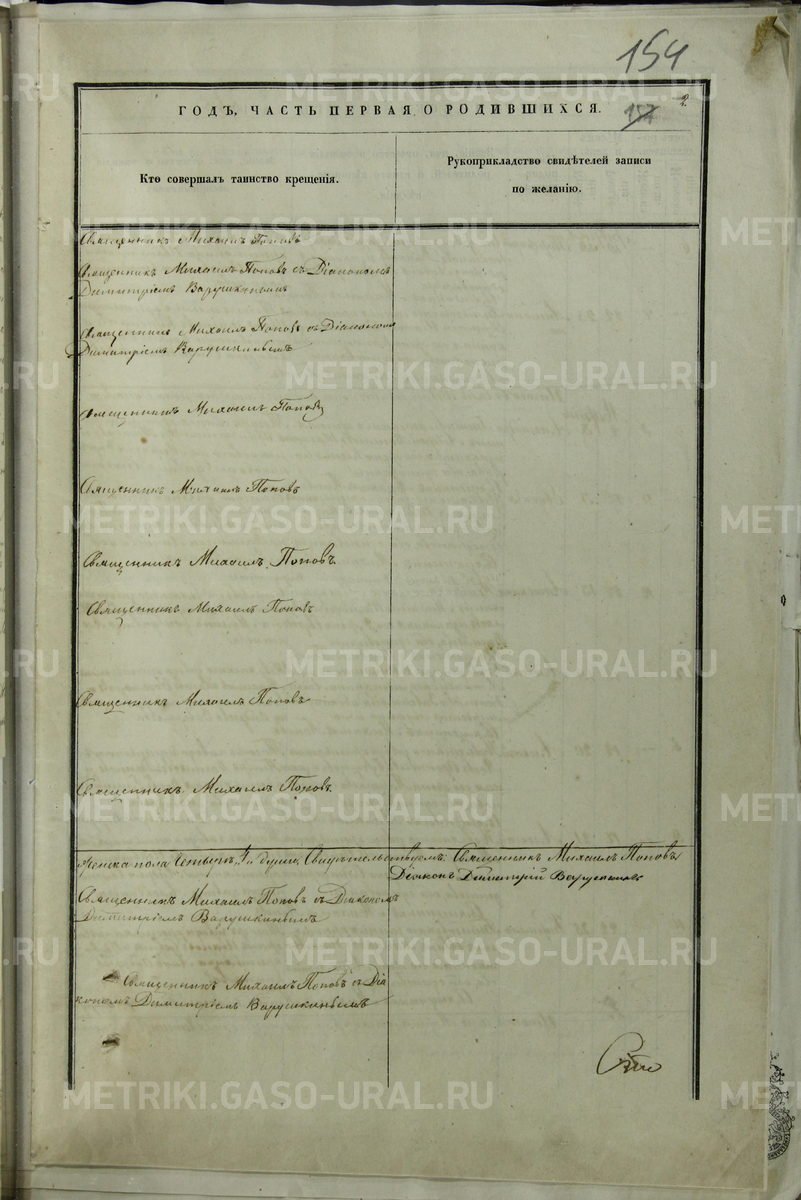 154
ГОДЪ, ЧАСТЬ ПЕРВАЯ О РОДИВШИХСЯ.
2
Кто совершалъ таинство крещенія.
Рукоприкладство свидѣтелей записи
по желанію.
Священникъ Михаилъ Поповъ
Священникъ Михаилъ Поповъ съ Діакономъ
Димитріемъ Варушкинымъ
Священникъ Михаилъ Поповъ съ Діакономъ
Димитріемъ Варушкинымъ
Священникъ Михаилъ Поповъ
Священникъ Михаилъ Поповъ
Священникъ Михаилъ Поповъ.
Священникъ Михаилъ Поповъ
Священникъ Михаилъ Поповъ
Священникъ Михаилъ Поповъ.
женска пола души, Свидѣтельствуемъ: Священникъ Михаилъ Поповъ
Діаконъ Димитрій Варушкинъ
Священникъ Михаилъ Поповъ съ Діакономъ
Димитріемъ Варушкинымъ
Священникъ Михаилъ Поповъ съ Діа
кономъ Димитріемъ Варушкинымъ
METRIKI.GASO-URAL.RU